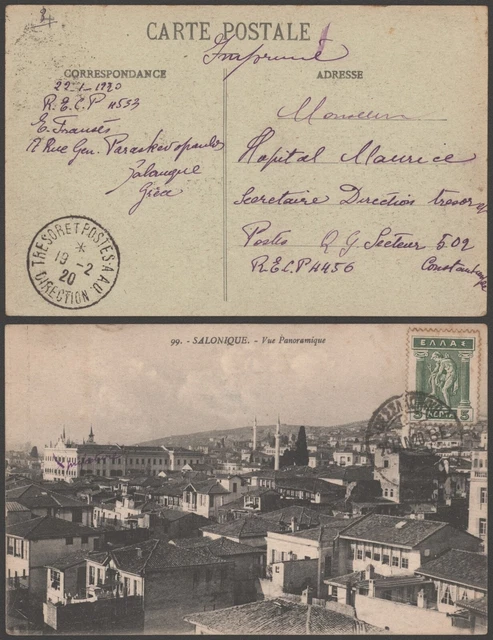 CARTE POSTALE
Imprimé
CORRESPONDANCE
ADRESSE
22-1-1920
R.E.C.P 4533
E. Francés
17 Rue Gen. Paraskevopoulos
Salonique
Grèce
Monsieur
Hopital Maurice
Secretaire Direction tresor et
Postes Q G. Secteur 502
R.E.C.P 4456 Constantinople
TRESOR ET POSTES·A.A.O.
*
19 -2
20
DIRECTION
99. - SALONIQUE. - Vue Panoramique
ΕΛΛΑΣ
5 ΛΕΠΤΑ 5